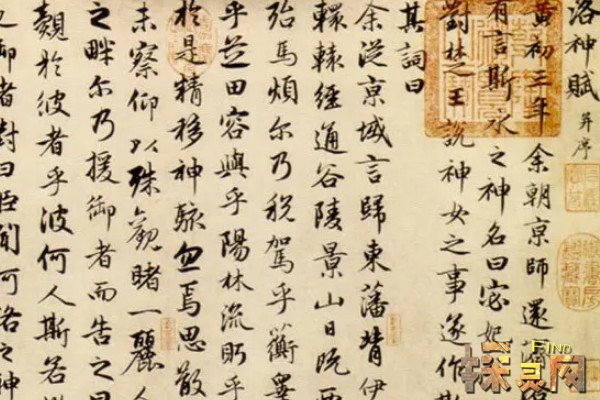 洛神賦 并序
黄初三年余朝京師還濟
有言斯水之神名曰宓妃
對楚王說神女之事遂作斯
其詞曰
余從京域言歸東藩背伊
轘轅經通谷陵景山日既西
殆馬煩尔乃税駕乎蘅皋
乎芝田容與乎陽林流眄乎
於是精移神駭忽焉思散
未察仰以殊觀睹一麗人
之畔尔乃援御者而告之曰
覿於彼者乎彼何人斯若
御者對曰臣聞河洛之神
FIND
探灵网